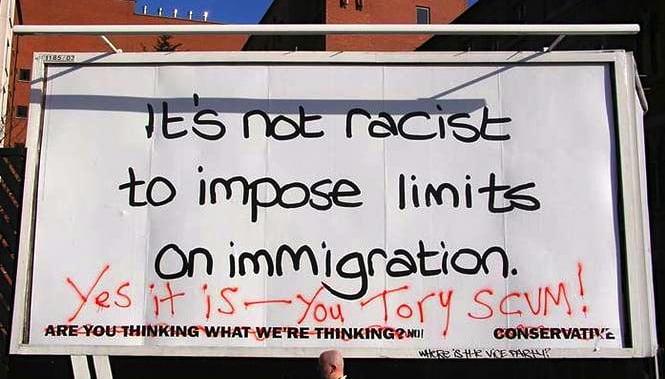 1185/07
It's not racist
to impose limits
on immigration.
Yes it is — You Tory SCUM!
ARE YOU THINKING WHAT WE'RE THINKING? NO! CONSERVATIVE
WHERE IS THE VICE PARTY?